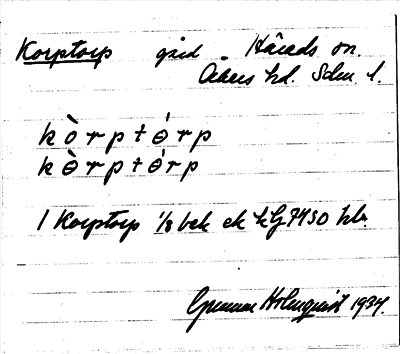 Korptorp gård. Härads sn.
Åkers hd. Sdm. l.
kòrptórp
kɵ̀rptɵ́rp
1 Korptorp 1/8 bek ek kG 7450 hbr.
Gunnar Holmqvist 1934.